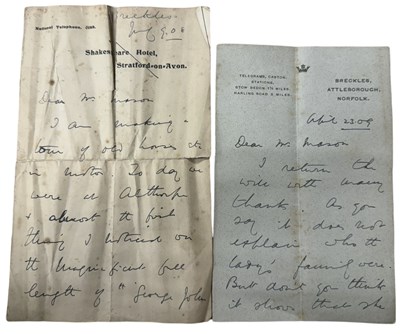 National Telephone,
Breckles.
July 9.06
Shakespeare Hotel,
Stratford-on-Avon.
Dear Mr Mason
I am making a
tour of old houses etc
in motor. To day we
were at Althorp
& almost the first
thing I noticed was
the magnificent full
length of "George John
TELEGRAMS, CASTON.
STATIONS,
STOW BEDON 1½ MILES.
HARLING ROAD 5 MILES.
BRECKLES,
ATTLEBOROUGH,
NORFOLK.
April 23 09
Dear Mr Mason
I return the
will with many
thanks. As you
say it does not
explain who the
lady's family were.
But don't you think
it shows that she